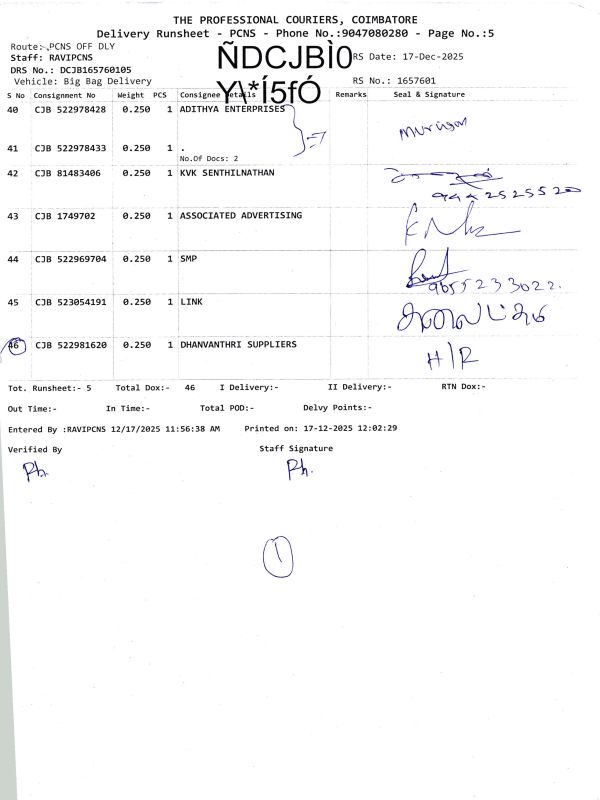 THE PROFESSIONAL COURIERS, COIMBATORE
Delivery Runsheet - PCNS - Phone No.:9047080280 - Page No.:5
Route: PCNS OFF DLY
ÑDCJBÌ0
RS Date: 17-Dec-2025
Staff: RAVIPCNS
DRS No.: DCJB165760105
Vehicle: Big Bag Delivery
Y\*Í5fÓ
RS No.: 1657601
S No Consignment No Weight PCS Consignee Details Remarks Seal & Signature
40 CJB 522978428 0.250 1 ADITHYA ENTERPRISES
Murugan
41 CJB 522978433 0.250 1 .
No.Of Docs: 2
42 CJB 81483406 0.250 1 KVK SENTHILNATHAN
43 CJB 1749702 0.250 1 ASSOCIATED ADVERTISING
44 CJB 522969704 0.250 1 SMP
9655233022.
45 CJB 523054191 0.250 1 LINK
46 CJB 522981620 0.250 1 DHANVANTHRI SUPPLIERS
H/R
Tot. Runsheet:- 5 Total Dox:- 46 I Delivery:- II Delivery:- RTN Dox:-
Out Time:- In Time:- Total POD:- Delvy Points:-
Entered By :RAVIPCNS 12/17/2025 11:56:38 AM Printed on: 17-12-2025 12:02:29
Verified By Staff Signature
1